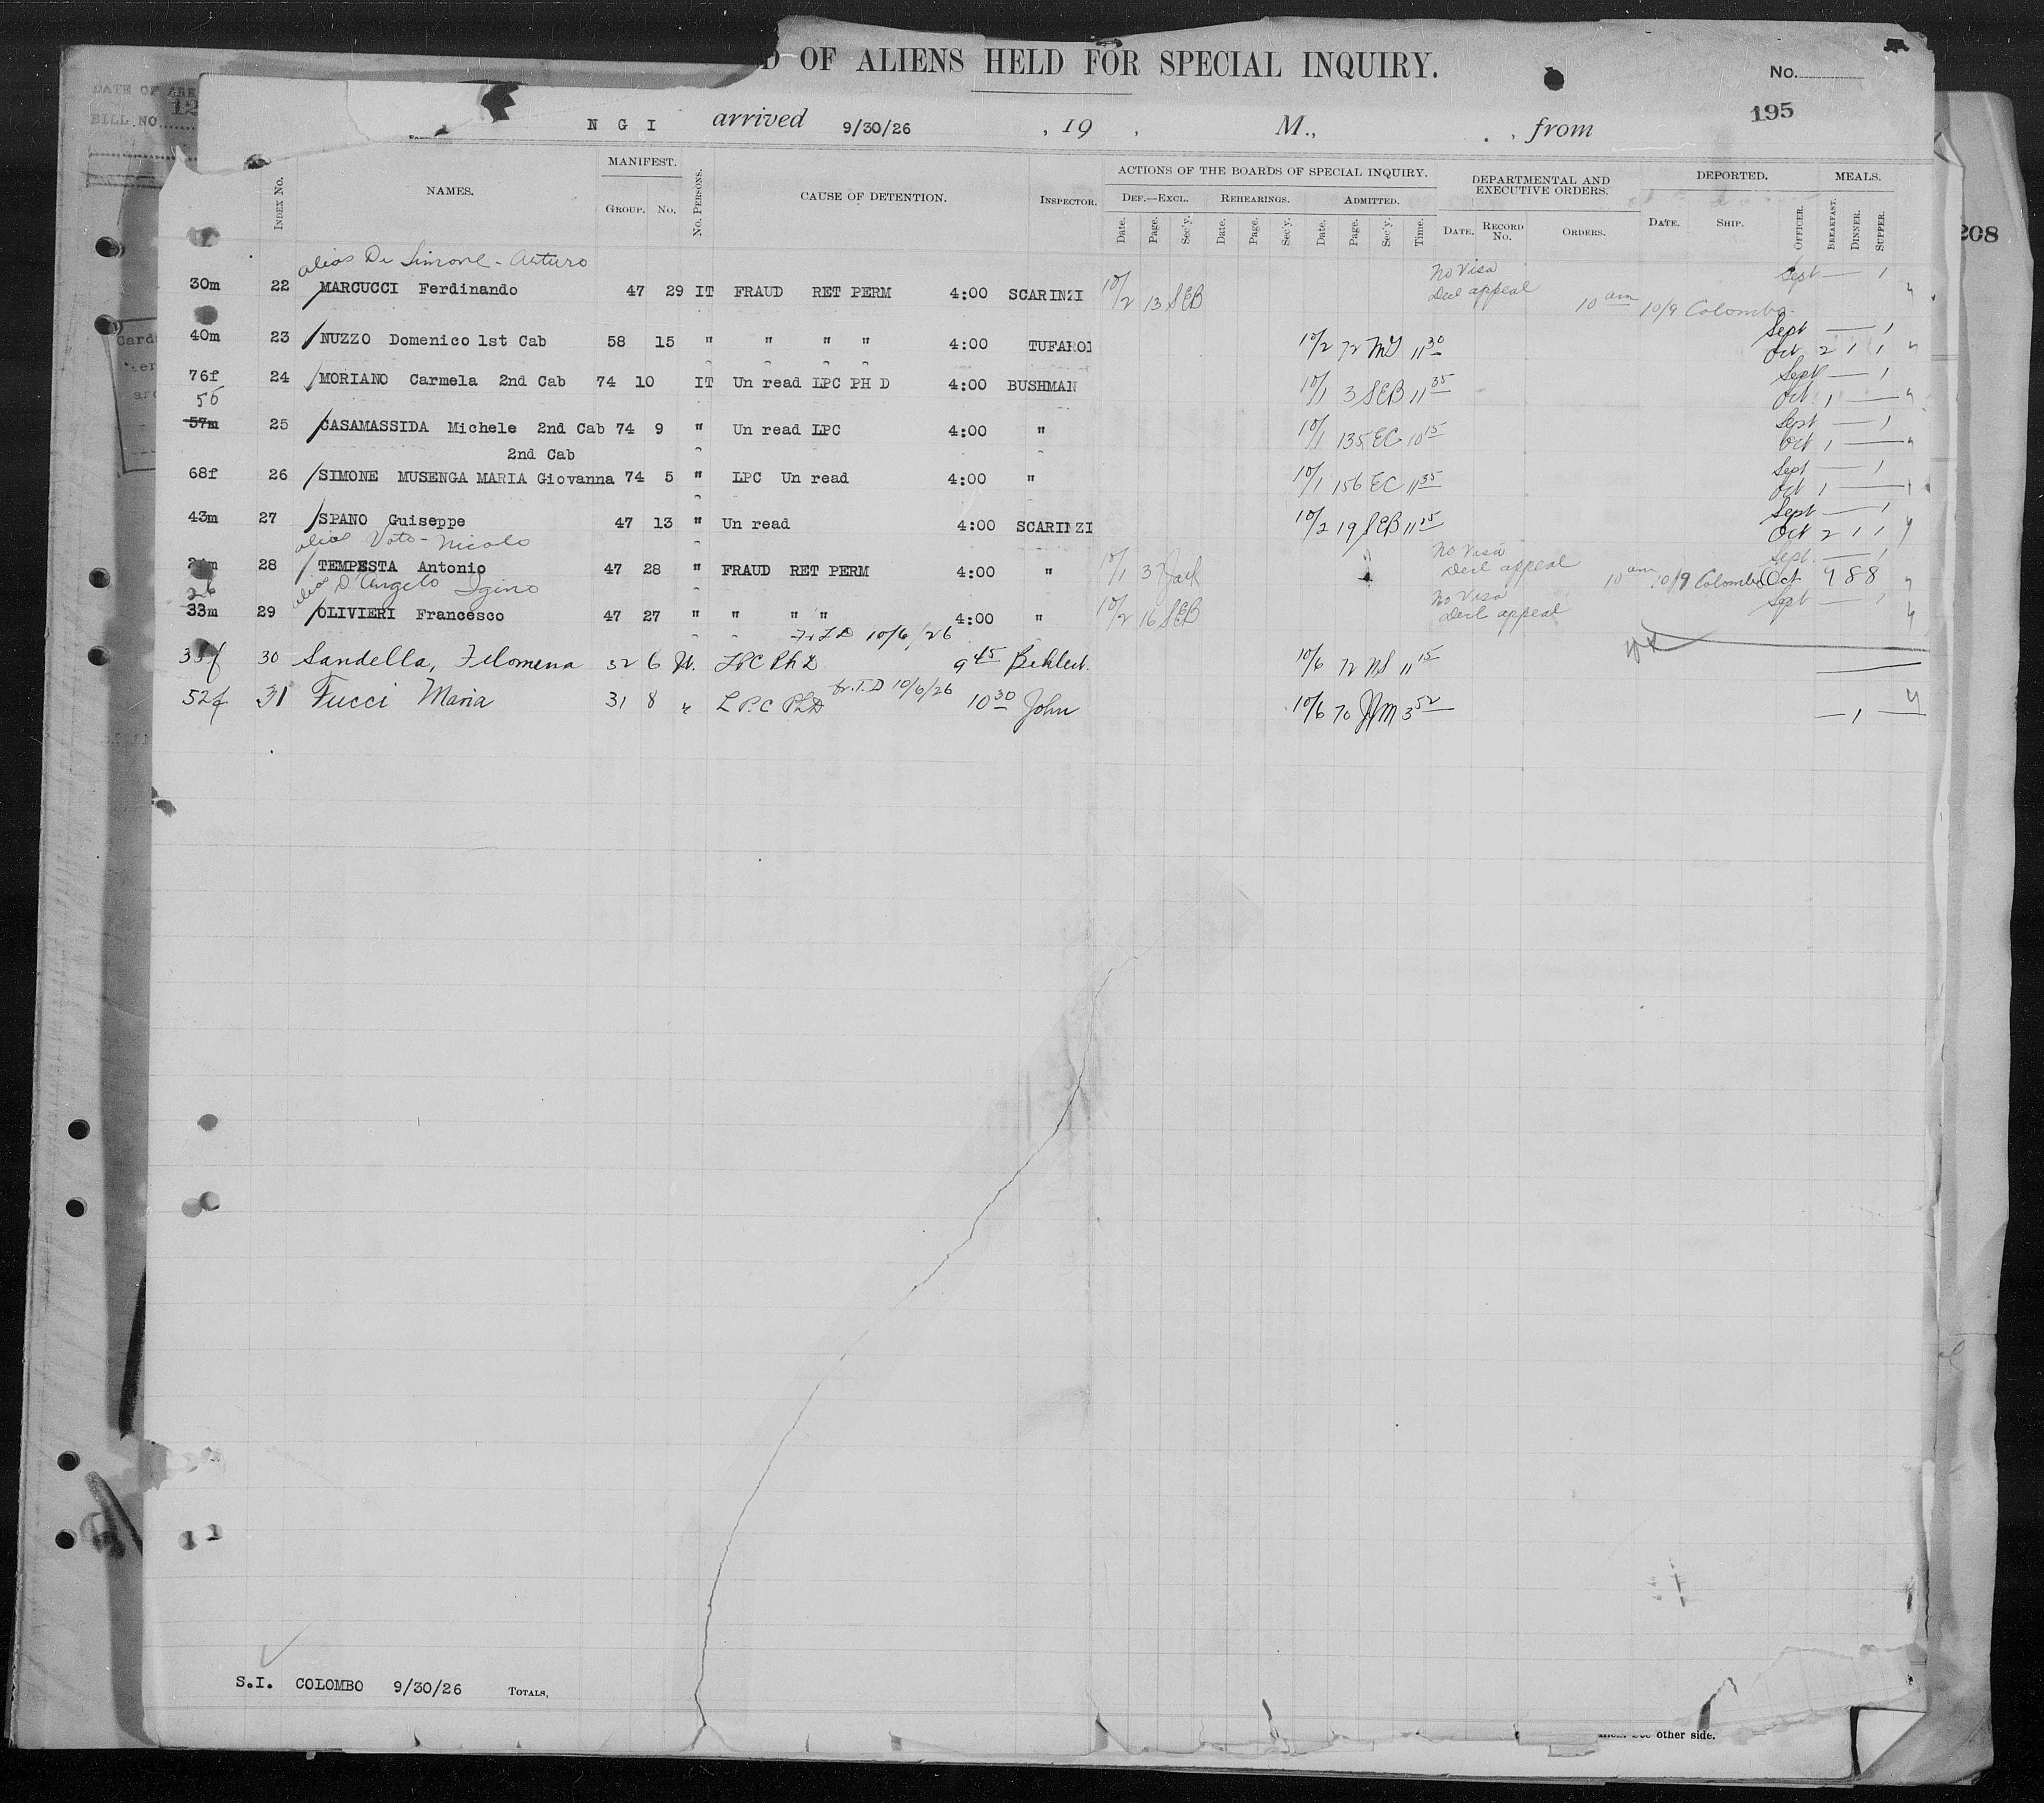 D OF ALIENS HELD FOR SPECIAL INQUIRY.
No.
195
DATE OF
BILL NO.
12
N G I arrived 9/30/26 , 19 , M., , from
208
INDEX No. NAMES. MANIFEST. GROUP. No. No. PERSONS. CAUSE OF DETENTION. INSPECTOR. ACTIONS OF THE BOARDS OF SPECIAL INQUIRY. DEF.—EXCL. Date. Page. Sec'y. REHEARINGS. Date. Page. Sec'y. ADMITTED. Date. Page. Sec'y. Time. DEPARTMENTAL AND EXECUTIVE ORDERS. DATE. RECORD No. ORDERS. DEPORTED. DATE. SHIP. OFFICER. MEALS. BREAKFAST. DINNER. SUPPER.
alias Di Simone - Arturo No Visa Sept — 1
30m 22 MARCUCCI Ferdinando 47 29 IT FRAUD RET PERM 4:00 SCARINZI 10/2 13 SEB Decl appeal 10 am 10/9 Colombo
Sept — 1
40m 23 NUZZO Domenico 1st Cab 58 15 " " " " 4:00 10/2 72 11 30 Oct 2 1 1
Sept — 1
76f 24 MORIANO Carmela 2nd Cab 74 10 IT Un read LPC PH D 4:00 BUSHMAN 10/1 3 SEB 11 35 Oct 1 —
56 Sept — 1
57m 25 CASAMASSIDA Michele 2nd Cab 74 9 " Un read LPC 4:00 " 10/1 135 EC 10 15 Oct 1 —
2nd Cab Sept — 1
68f 26 SIMONE MUSENGA MARIA Giovanna 74 5 " LPC Un read 4:00 " 10/1 156 EC 11 35 Oct 1 —
Sept — 1
43m 27 SPANO Guiseppe 47 13 " Un read 4:00 SCARINZI 10/2 19 SEB 11 15 Oct 2 1 1
alias Voto - Nicolo No Visa Sept — 1
28 TEMPESTA Antonio 47 28 " FRAUD RET PERM 4:00 " 10/1 Decl appeal 10 am 10/9 Colombo Oct 9 8 8
26 alias D'Angelo Igino No Visa Sept — 1
33m 29 OLIVIERI Francesco 47 27 " " " " 4:00 " 10/2 16 SEB Decl appeal
Fr T D 10/6/26
30 Sandella, Filomena 32 6 It. LPC Ph D 9 45 10/6 72 11 15
fr. T. D 10/6/26
52f 31 Fucci Maria 31 8 " LPC Ph D 10 30 John 10/6 70 3 52 — 1 —
S.I. COLOMBO 9/30/26 TOTALS,
other side.